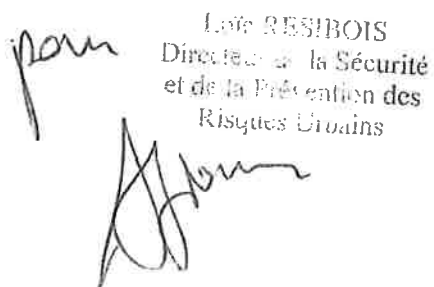 pour
Loïc RESIBOIS
Directeur de la Sécurité
et de la Prévention des
Risques Urbains